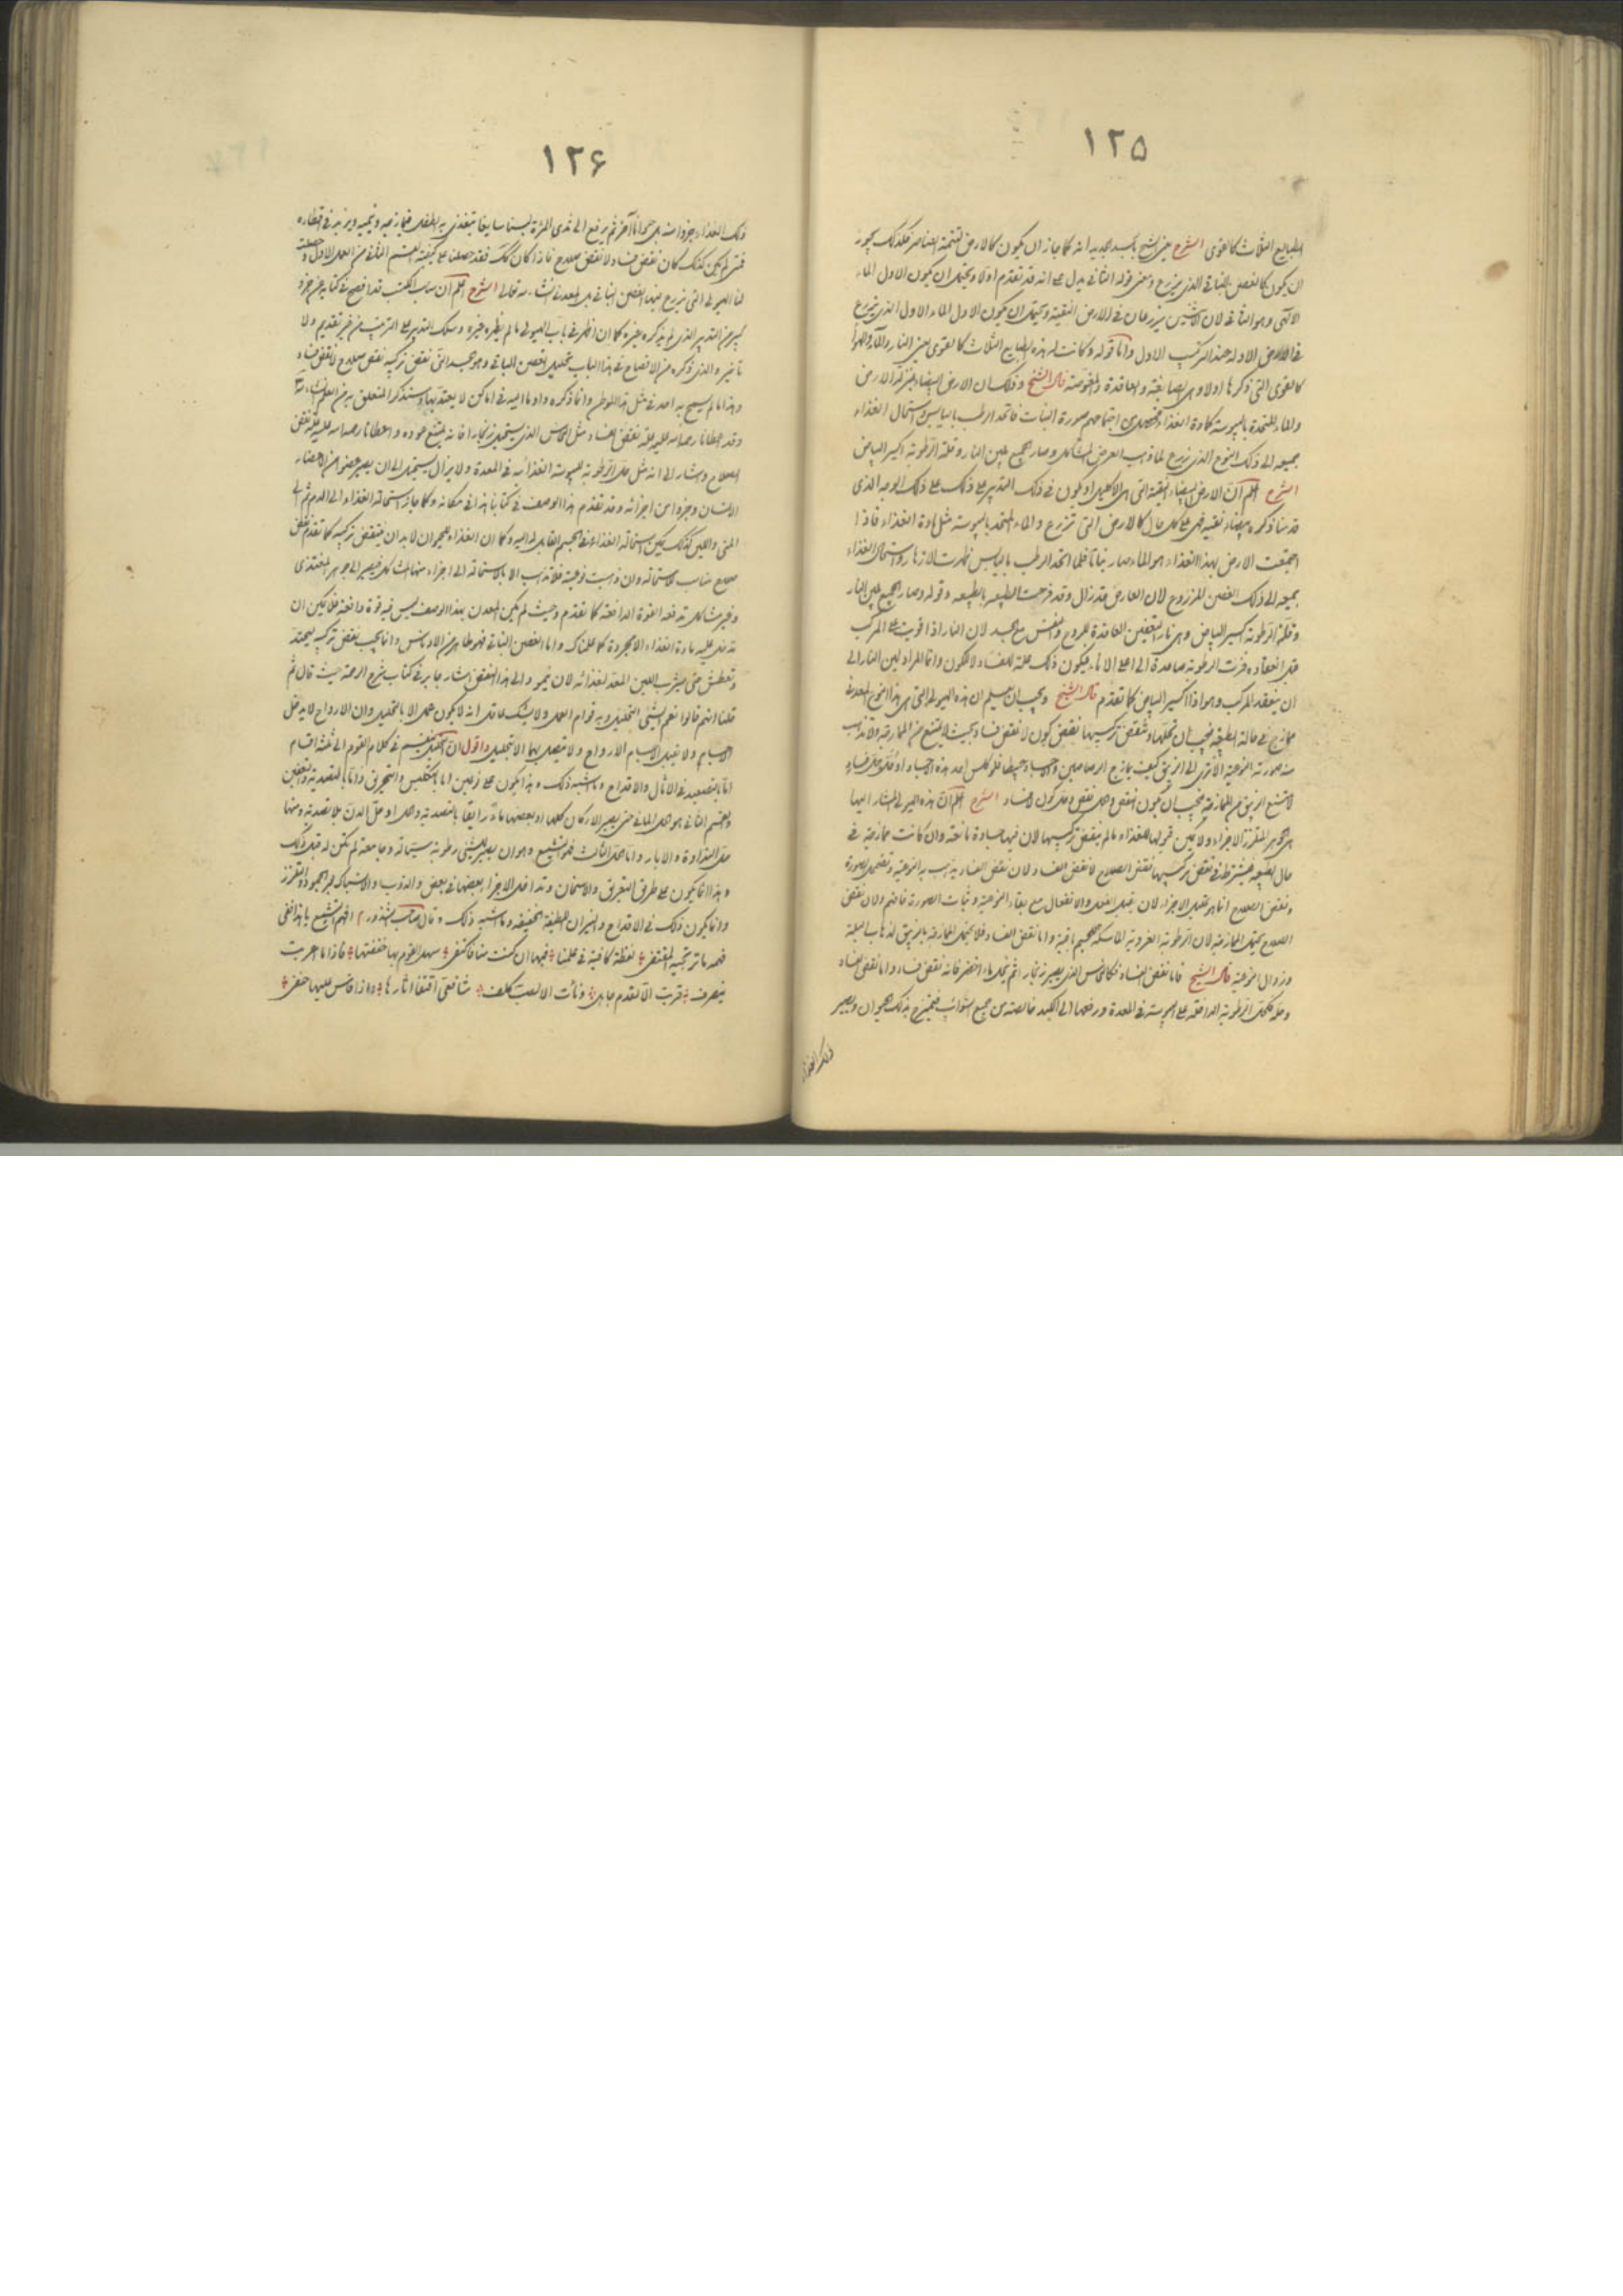 ١٢٥
الطبايع الثلاث كالقوى الشرح يعني الشيخ بالجسد الجديد انه كما جاز ان يكون كالارض لتتمة العناصر فكذلك يجوز
ان يكون كالغصن النباتي الذي يزرع ومعنى قوله الثاني يدل على انه قد تقدم اولا ويحتمل ان يكون الاول الماء
الالهي وهو الثاني لان الاثنين يزرعان في الارض النقية ويحتمل ان يكون الاول الماء الاول الذي يزرع
في الارض الاولة عند التركيب الاول واما قوله وكانت له هذه الطبايع الثلاث كالقوى يعني النار والماء والهوا
كالقوى التي ذكرها اولا وهي الصابغة والعاقدة والغواصة قال الشيخ وذلك ان الارض البيضاء بمنزلة الارض
والماء المتحد باليبوسة كمادة الغذاء فيحصل من اجتماعهم صورة النبات فاتحد الرطب باليابس واستحال الغذاء
جميعه الى ذلك النوع الذي زرع لما ذهب العرض المشاكل وصار الجميع بلين النار وقلة الرطوبة اكسير البياض
الشرح اعلم ان الارض البيضاء النقية التي هي الاكليل او يكون في ذلك التدبير على ذلك الوجه الذي
قدمنا ذكره بيضاء نقية فهي على كل حال كالارض التي تزرع والماء المتحد باليبوسة مثل مادة الغذاء فاذا
اجتمعت الارض بهذا الغذاء هو الماء صار نباتا فلما اتحد الرطب باليابس ظهرت الازهار واستحال الغذاء
جميعه الى ذلك الغصن المزروع لان العارض قد زال وقد فرحت الطبيعة بالطبيعة وقوله وصار الجميع بلين النار
وقلة الرطوبة اكسير البياض وهي نار التعفين العاقدة للروح والنفس مع الجسد لان النار اذا قويت على المركب
قبل انعقاده فرت الرطوبة صاعدة الى اعلى الاناء فيكون ذلك علة للفساد لا للكون وانما المراد لين النار الى
ان ينعقد المركب وهو اذا اكسير البياض كما تقدم قال الشيخ ويجب ان تعلم ان هذه الهيولى التي هي هذا النوع المعدني
ممازج في حالة الطبيعة فيجب ان تحللها وتنقض تركيبها نقض كون لا نقض فساد بحيث لا يمتنع من الممازجة ولا تذهب
منه صورته النوعية الا ترى الى الزيبق كيف يمازج الرصاصين والاجساد جميعا فلو كلس احد هذه الاجساد او حل حل فساد
لامتنع الزيبق من الممازجة فيجب ان يكون النقض وحل نقض وحل كون لا فساد الشرح اعلم ان هذه الهيولى المشار اليها
هي الجوهر المتلززة الاجزاء ولا يمكن قبولها للغذاء ما لم ينقض تركيبها لان فيها جسادة مانعة وان كانت ممازجة في
حال الطبيعة فيشترط في نقض تركيبها نقض الصلاح لا نقض الفساد لان نقض الفساد يذهب به النوعية وتضمحل الصورة
ونقض الصلاح انما هو تخليل الاجزاء لان يقبل الفعل والانفعال مع بقاء النوعية وثبات الصورة فافهم ولان نقض
الصلاح يحتمل الممازجة لان الرطوبة الغروية الماسكة للجسم باقية واما نقض الفساد فلا يحتمل الممازجة بالزيبق لذهاب الصلة
وزوال النوعية قال الشيخ فاما نقض الفساد فكالنحاس الذي يصير زنجارا ثم يحل ماء اخضر فانه نقض فساد واما نقض الصلاح
ومثله كحل الرطوبة الدافقة على اليبوسة في المعدة ورفعها الى الكبد خالصة من جميع الشوائب فيمتزج بذلك الحيوان ويصير
ذلك الغذاء
١٢۶
ذلك الغذاء جزوا منه بل حيوانا آخر ثم يرفع الى ثدى المرأة لبنا سايغا تتغذى به الطفل فيمازجه وينميه ويزيد في اقطاره
فمتى لم يكن كذلك كان نقض فساد لا نقض صلاح فاذا كان كذلك فقد حصلنا على كيفية القسم الثاني من العمل الاول وحصلت
لنا الهيولى التي يزرع فيها الغصن النباتي بل المعدني ان شاء الله تعالى الشرح اعلم ان صاحب المكتسب قد افصح في كتابه عن جزء
كبير من التدبير الذي لم يذكره غيره كما ان اظهر في باب الهيولى ما لم يظهره غيره وسلك التدبير على الترتيب من غير تقديم ولا
تأخير والذي ذكره من الافصاح في هذا الباب تحليل الغصن النباتي وهو الجسد التي نقض تركيبه نقض صلاح لا نقض فساد
وهذا ما لم يسمح به احد في مثل هذا الموطن وانما ذكره واوما اليه في اماكن لا يعتد بها وسنذكر المتعلق به من العلم ان شاء الله
وقد اعطانا رحمة الله عليه علة نقض الفساد مثل النحاس الذي يستحيل زنجارا فانه يمتنع عوده واعطانا رحمة الله عليه علة نقض
الصلاح واشار الى انه مثل حل الرطوبة لليبوسة الغذائية في المعدة ولا يزال يستحيل الى ان يصير عضوا من اعضاء
الانسان وجزءا من اجزائه وقد تقدم هذا الوصف في كتابنا هذا في مكانه وكما جاز استحالة الغذاء الى الدم ثم الى
المنى واللبن كذلك يمكن استحالة الغذاء بهذا الجسم القابل له اليه وكما ان الغذاء للحيوان لابد ان ينتقض تركيبه كما تقدم نقض
صلاح مناسب لاستحالة وان ذهبت نوعيته فلا تذهب الا بالاستحالة الى اجزاء منها المشاكل فيصير الى جوهر المغتذى
وغير مشاكل تدفعه القوة الدافعة كما تقدم وحيث لم يكن المعدن بهذا الوصف ليس فيه قوة دافعة فلا يمكن ان
تدخل عليه مادة الغذاء الا مجردة كما علمناك واما الغصن النباتي فهو طاهر من الاوناس وانما يجب نقض تركيبه ليمتد
وتعطش حتى يشرب اللبن المعد لغذائه لان ينمو والى هذا النقض اشار جابر في كتاب شرح الرحمة حيث قال ثم
قلنا انهم قالوا نعم الشئ التحليل وبه قوام العمل ولا يشك عاقل انه لا يكون عمل الا بالتحليل وان الارواح لا يدخل
الاجسام ولا يقبل الاجسام الارواح ولا يتصل بهما الا بتحليل واقول ان الحل ينقسم في كلام القوم الى ثلثة اقسام
اما بالتصعيد في الاثال والاقداح وما شبه ذلك وهذا يكون على نوعين اما بالتكليس والتحريق واما بالتصدية والتعفين
والقسم الثاني هو الحل المائي حتى يصير الاركان كلها او بعضها ماء رايقا بالتصدية وحل او حل الدن بلا تصدية ومنها
حل النداوة والابار واما الحل الثالث فهو التشميع وهو ان يصير الشئ رطوبة سيالة وجامعة لم تكن له قبل ذلك
وهذا انما يكون على طريق التعريق والاسخان وتداخل الاجزا بعضها في بعض والذوب والاشباك بعد الجمود والتلزز
وانما يكون ذلك في الاقداح والنيران اللطيفة الخفيفة وما شبه ذلك وقال صاحب الشذور افهم التشميع يا هذا ففى
فهمه ما ترتجيه المقتفى لفظة كافية في علمنا فبها ان كنت منا فاكتفى سهل القوم بها خففتها فاذا ما هربت
ينصرف قربت الا لقدم جاهل ونأت الا لصب كلف شافعى اقتفا اثارها واذا قاس عليها حنفى